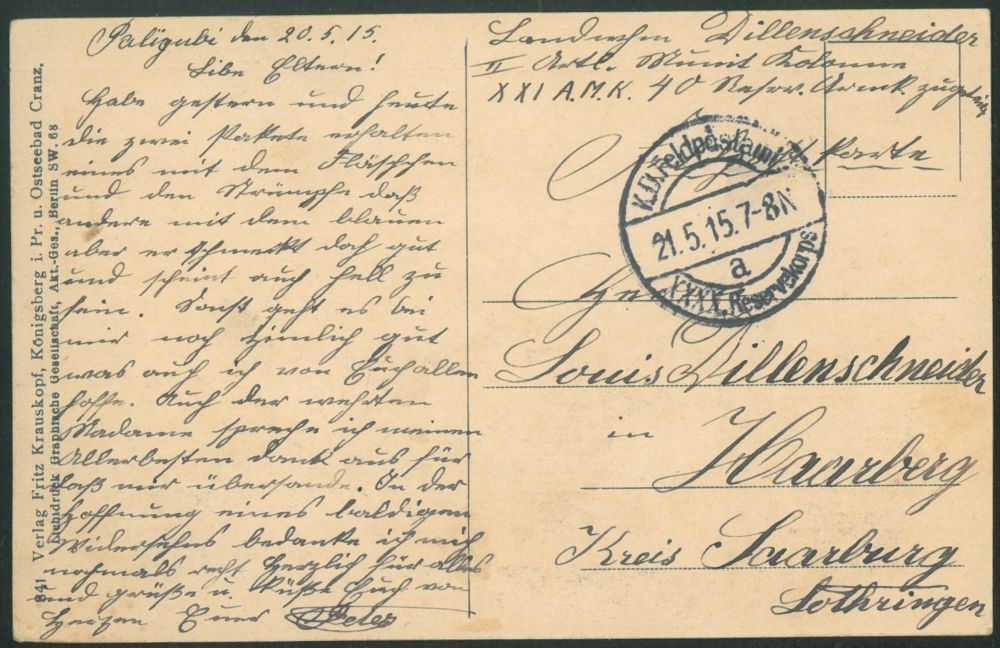 Paligubi den 20.5.15.
Libe Eltern!
Habe gestern und heute
die zwei Pakete erhalten
eines mit dem Fläschchen
und den Strümpfe daß
andere mit dem blauen
aber er schmeckt doch gut
und scheint auch hell zu
sein. Sonst geht es bei
mir noch zimlich gut
was auch ich von Euch allen
hoffe. Auch der wehrten
Madame spreche ich meinen
Allerbesten Dank aus für
daß mir übersande. In der
Hoffnung eines baldigen
Widersehns bedanke ich mich
nochmals recht Herzlich für alles
und grüße u. küße Euch von
Herzen Euer Peter
Landwehrm Dillenschneider
II Artl. Munit Kolonne
XXI A.M.K. 40 Reserv. Armk. zugeteilt
Karte
K.D.Feldpostamt
21.5.15.7-8N
a
XXXX.Reservekorps
Louis Dillenschneider
in
Haarberg
Kreis Saarburg
Lothringen
841 Verlag Fritz Krauskopf, Königsberg i. Pr. u. Ostseebad Cranz.
Lichtdruck Graphische Gesellschaft, Akt.-Ges., Berlin SW. 68